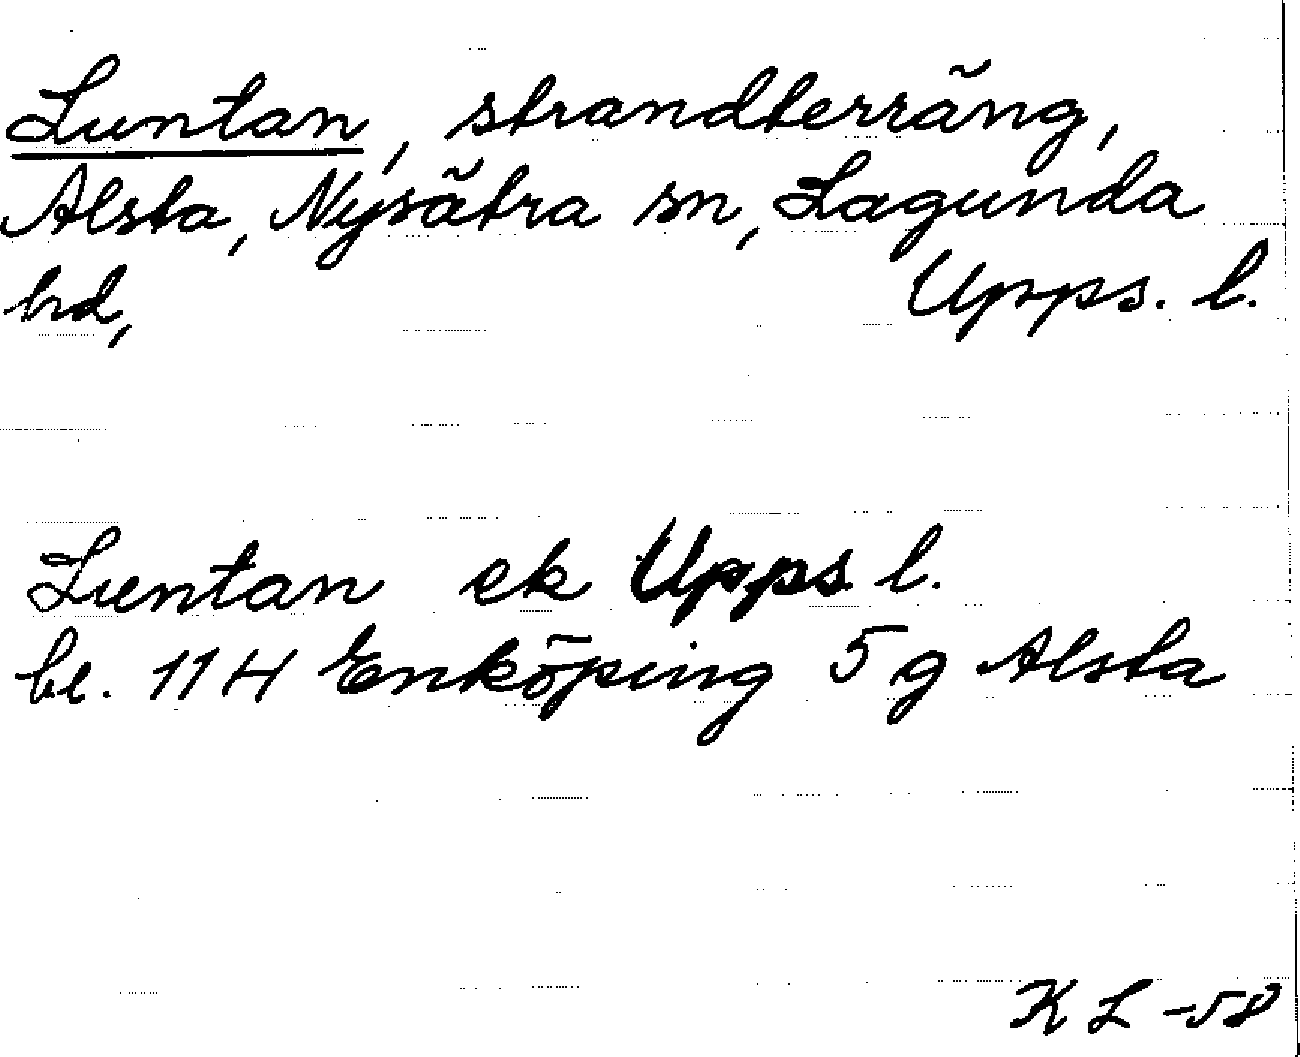 Luntan, strandterräng,
Alsta, Nysätra sn, Lagunda
hd, Upps. l.
Luntan ek Upps l.
bl. 114 Enköping 5 g Alsta
K L -58